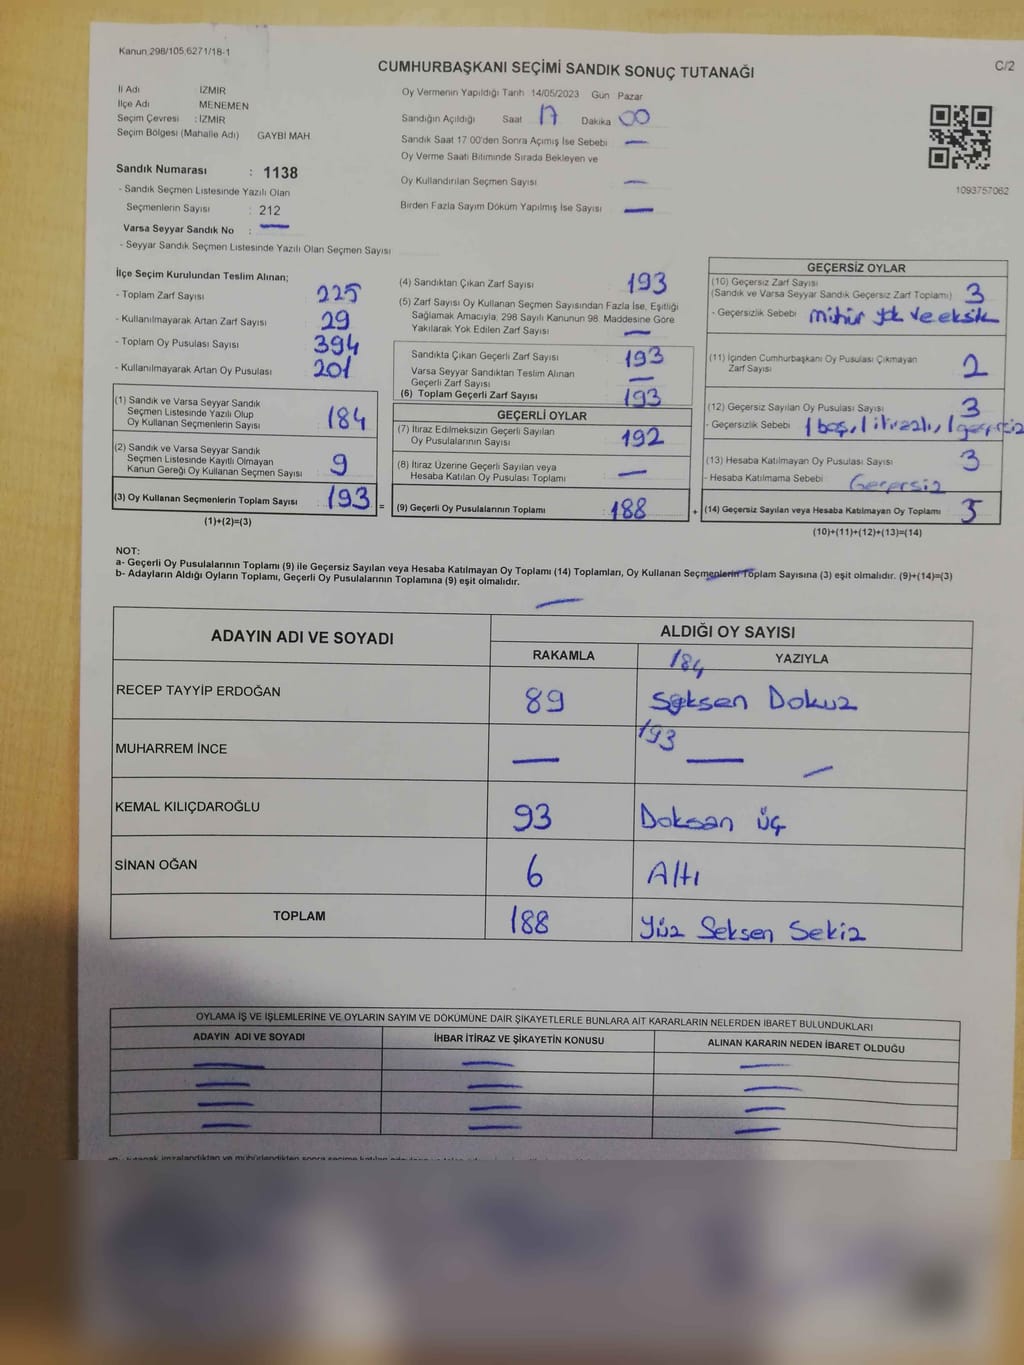 Kanun 298/105,6271/18-1
C/2
CUMHURBAŞKANI SEÇİMİ SANDIK SONUÇ TUTANAĞI
İl Adı İZMİR
İlçe Adı MENEMEN
Seçim Çevresi : İZMİR
Seçim Bölgesi (Mahalle Adı) GAYBİ MAH
Sandık Numarası : 1138
- Sandık Seçmen Listesinde Yazılı Olan
Seçmenlerin Sayısı : 212
Varsa Seyyar Sandık No : —
- Seyyar Sandık Seçmen Listesinde Yazılı Olan Seçmen Sayısı
Oy Vermenin Yapıldığı Tarih 14/05/2023 Gün Pazar
Sandığın Açıldığı Saat 17 Dakika 00
Sandık Saat 17 00'den Sonra Açımış İse Sebebi —
Oy Verme Saati Bitiminde Sırada Bekleyen ve
Oy Kullandırılan Seçmen Sayısı —
Birden Fazla Sayım Döküm Yapılmış İse Sayısı —
1093757062
İlçe Seçim Kurulundan Teslim Alınan;
- Toplam Zarf Sayısı 225
- Kullanılmayarak Artan Zarf Sayısı 29
- Toplam Oy Pusulası Sayısı 394
- Kullanılmayarak Artan Oy Pusulası 201
(1) Sandık ve Varsa Seyyar Sandık
Seçmen Listesinde Yazılı Olup
Oy Kullanan Seçmenlerin Sayısı 184
(2) Sandık ve Varsa Seyyar Sandık
Seçmen Listesinde Kayıtlı Olmayan
Kanun Gereği Oy Kullanan Seçmen Sayısı 9
(3) Oy Kullanan Seçmenlerin Toplam Sayısı 193 =
(1)+(2)=(3)
(4) Sandıktan Çıkan Zarf Sayısı 193
(5) Zarf Sayısı Oy Kullanan Seçmen Sayısından Fazla İse, Eşitliği
Sağlamak Amacıyla, 298 Sayılı Kanunun 98. Maddesine Göre
Yakılarak Yok Edilen Zarf Sayısı —
Sandıkta Çıkan Geçerli Zarf Sayısı 193
Varsa Seyyar Sandıktan Teslim Alınan
Geçerli Zarf Sayısı —
(6) Toplam Geçerli Zarf Sayısı 193
GEÇERLİ OYLAR
(7) İtiraz Edilmeksizin Geçerli Sayılan
Oy Pusulalarının Sayısı 192
(8) İtiraz Üzerine Geçerli Sayılan veya
Hesaba Katılan Oy Pusulası Toplamı —
(9) Geçerli Oy Pusulalarının Toplamı 188 +
GEÇERSİZ OYLAR
(10) Geçersiz Zarf Sayısı
(Sandık ve Varsa Seyyar Sandık Geçersiz Zarf Toplamı) 3
- Geçersizlik Sebebi mühür yok ve eksik
(11) İçinden Cumhurbaşkanı Oy Pusulası Çıkmayan
Zarf Sayısı 2
(12) Geçersiz Sayılan Oy Pusulası Sayısı 3
- Geçersizlik Sebebi 1 boş, 1 itirazlı, 1 geçersiz
(13) Hesaba Katılmayan Oy Pusulası Sayısı 3
- Hesaba Katılmama Sebebi Geçersiz
(14) Geçersiz Sayılan veya Hesaba Katılmayan Oy Toplamı
(10)+(11)+(12)+(13)=(14)
NOT:
a- Geçerli Oy Pusulalarının Toplamı (9) ile Geçersiz Sayılan veya Hesaba Katılmayan Oy Toplamı (14) Toplamları, Oy Kullanan Seçmenlerin Toplam Sayısına (3) eşit olmalıdır. (9)+(14)=(3)
b- Adayların Aldığı Oyların Toplamı, Geçerli Oy Pusulalarının Toplamına (9) eşit olmalıdır.
ADAYIN ADI VE SOYADI
ALDIĞI OY SAYISI
RAKAMLA 184 YAZIYLA
RECEP TAYYİP ERDOĞAN 89 Seksen Dokuz
193
MUHARREM İNCE — —
KEMAL KILIÇDAROĞLU 93 Doksan üç
SİNAN OĞAN 6 Altı
TOPLAM 188 Yüz Seksen Sekiz
OYLAMA İŞ VE İŞLEMLERİNE VE OYLARIN SAYIM VE DÖKÜMÜNE DAİR ŞİKAYETLERLE BUNLARA AİT KARARLARIN NELERDEN İBARET BULUNDUKLARI
ADAYIN ADI VE SOYADI İHBAR İTİRAZ VE ŞİKAYETİN KONUSU ALINAN KARARIN NEDEN İBARET OLDUĞU
— — —
— — —
— — —
— — —